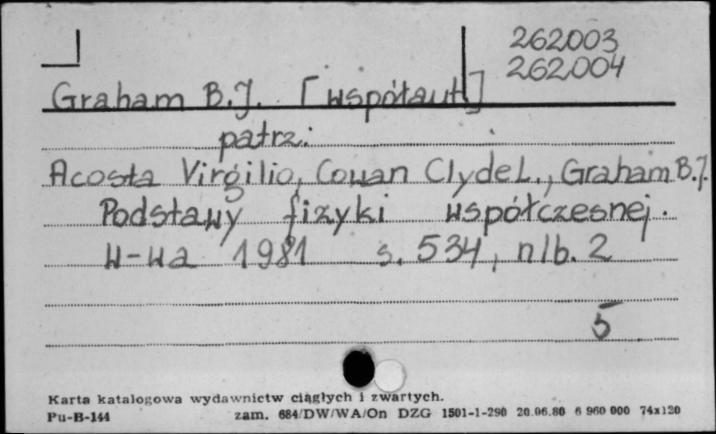 262003
262004
Graham B.J. [współaut]
patrz:
Acosta Virgilio, Cowan Clyde L., Graham B.J.
Podstawy fizyki współczesnej.
W-wa 1981 s. 534, nlb. 2
5
Karta katalogowa wydawnictw ciągłych i zwartych.
Pu-B-144 zam. 684/DW/WA/On DZG 1501-1-290 20.06.80 6 960 000 74x120